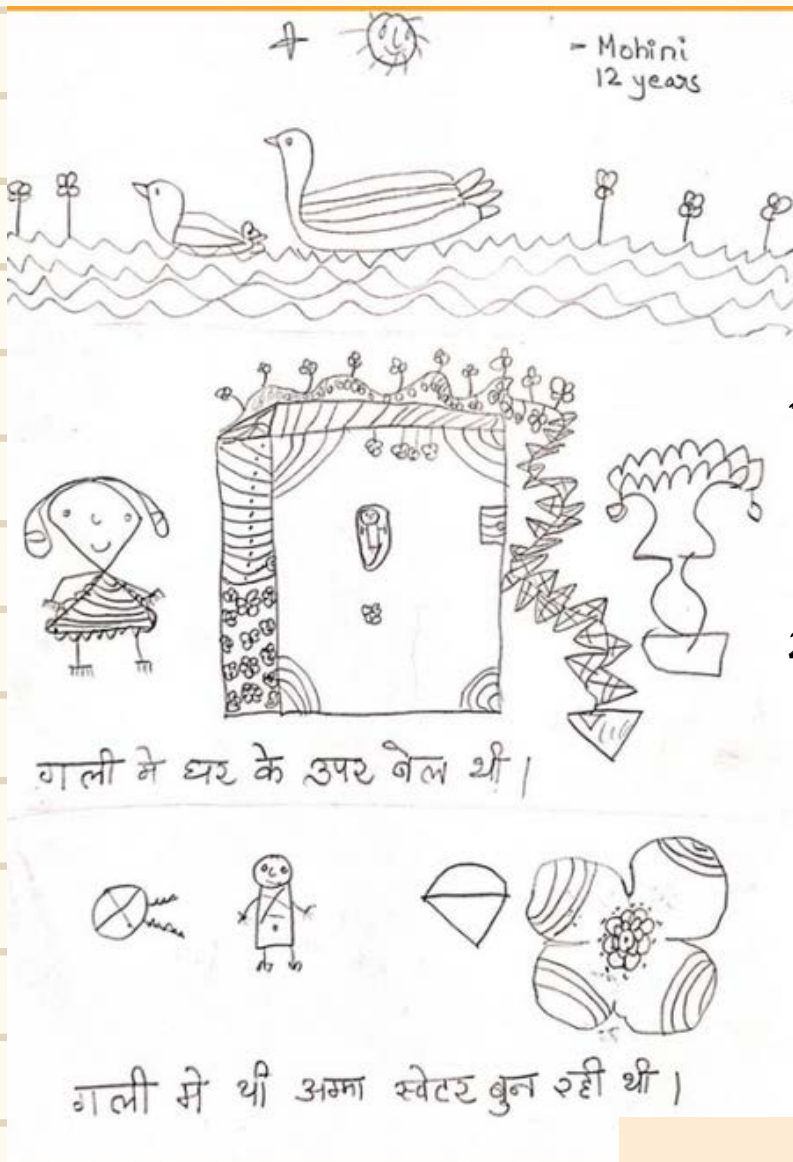 - Mohini
12 years
गली मे घर के उपर बेल थी।
गली मे थी अम्मा स्वेटर बुन रही थी।